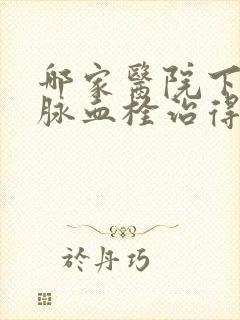 哪家醫院下
脈血栓治得
於丹巧